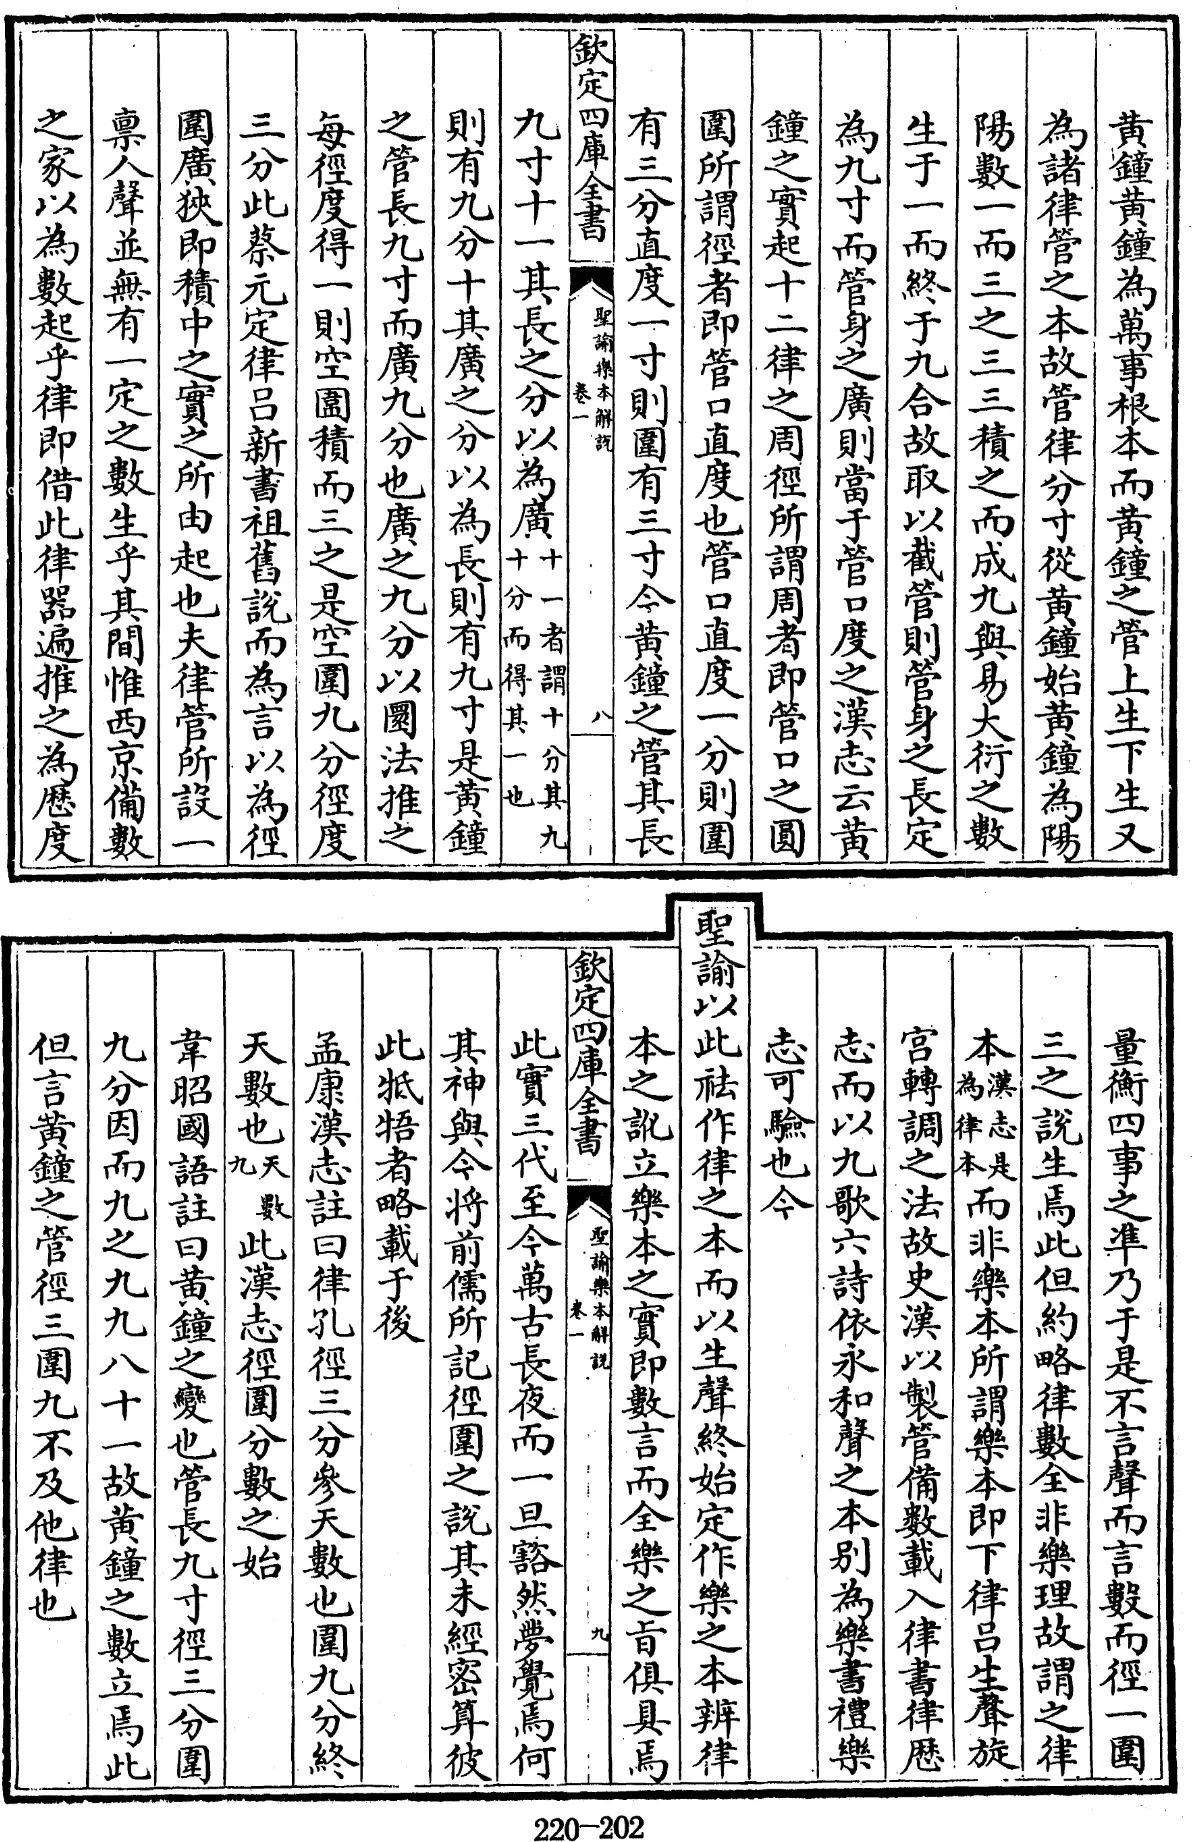 黃鐘黃鐘為萬事根本而黃鐘之管上生下生又
為諸律管之本故管律分寸從黃鐘始黃鐘為陽
陽數一而三之三三積之而成九與易大衍之數
生于一而終于九合故取以截管則管身之長定
為九寸而管身之廣則當于管口度之漢志云黃
鐘之實起十二律之周徑所謂周者即管口之圓
圍所謂徑者即管口直度也管口直度一分則圍
有三分直度一寸則圍有三寸今黃鐘之管其長
欽定四庫全書
聖諭樂本解說
卷一
八
九寸十一其長之分以為廣十一者謂十分其九十分而得其一也
則有九分十其廣之分以為長則有九寸是黃鐘
之管長九寸而廣九分也廣之九分以圜法推之
每徑度得一則空圍積而三之是空圍九分徑度
三分此蔡元定律呂新書祖舊說而為言以為徑
圍廣狹即積中之實之所由起也夫律管所設一
禀人聲並無有一定之數生乎其間惟西京備數
之家以為數起乎律即借此律器遍推之為厯度
量衡四事之準乃于是不言聲而言數而徑一圍
三之說生焉此但約略律數全非樂理故謂之律
本漢志是為律本而非樂本所謂樂本即下律呂生聲旋
宮轉調之法故史漢以製管備數載入律書律厯
志而以九歌六詩依永和聲之本別為樂書禮樂
志可驗也今
聖諭以此祛作律之本而以生聲終始定作樂之本辨律
本之訛立樂本之實即數言而全樂之旨俱具焉
欽定四庫全書
聖諭樂本解說
卷一
九
此實三代至今萬古長夜而一旦豁然夢覺焉何
其神與今將前儒所記徑圍之說其未經密算彼
此牴牾者略載于後
孟康漢志註曰律孔徑三分參天數也圍九分終
天數也天數九此漢志徑圍分數之始
韋昭國語註曰黃鐘之變也管長九寸徑三分圍
九分因而九之九九八十一故黃鐘之數立焉此
但言黃鐘之管徑三圍九不及他律也
220-202